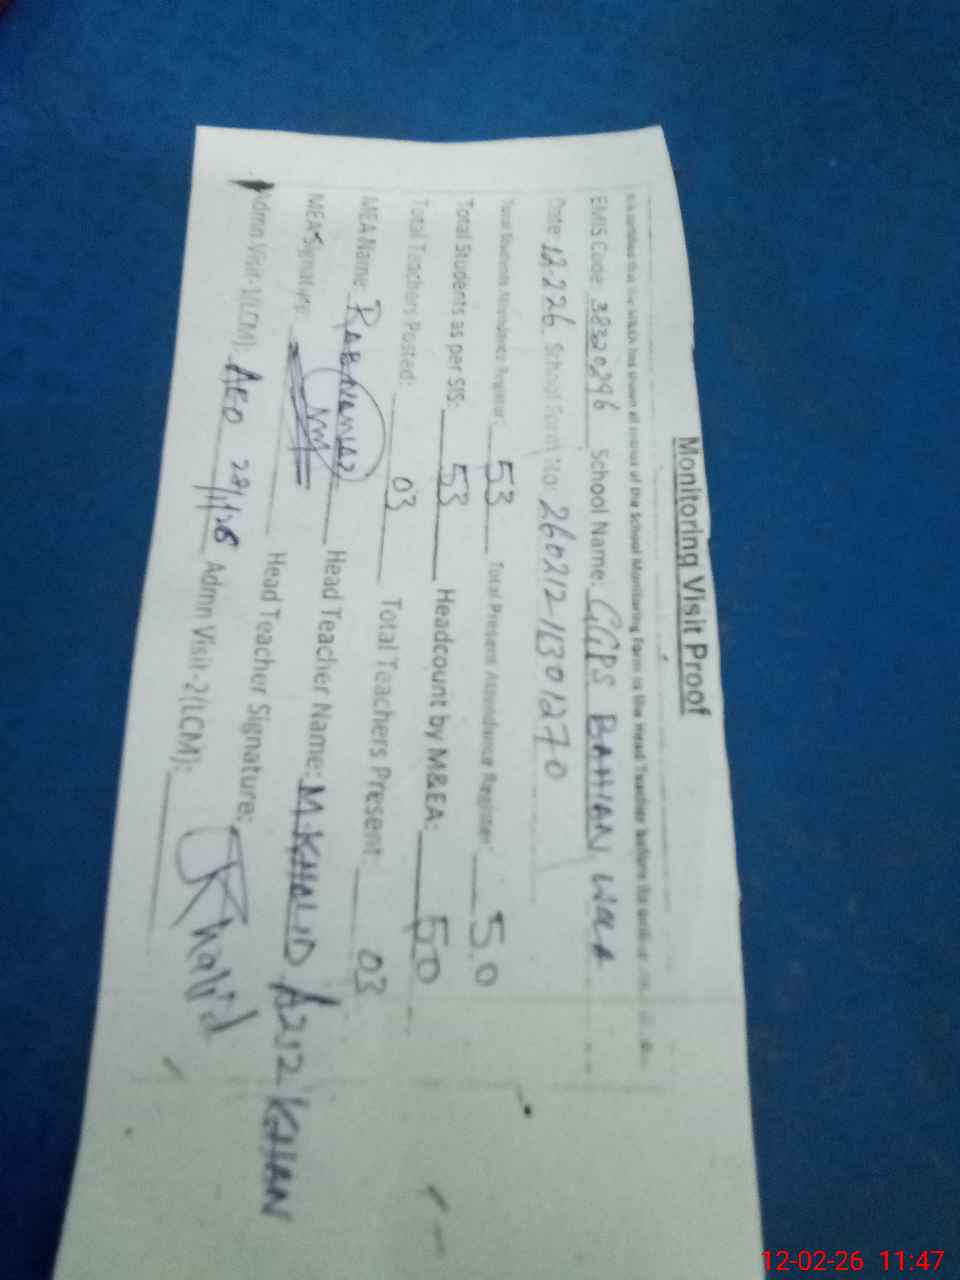 Monitoring Visit Proof
It is certified that the M&EA has shown all entries of the School Monitoring Form to the Head Teacher before its
EMIS Code: 38320296 School Name: GGPS BAHIAN WALA
Date: 12-2-26 School Form No: 260212-1301270
Total Students Attendance Register: 53 Total Present Attendance Register: 50
Total Students as per SIS: 53 Headcount by M&EA: 50
Total Teachers Posted: 03 Total Teachers Present: 03
MEA Name: RAB NAWAZ Head Teacher Name: M. KHALID AZIZ KHAN
MEA Signature: Head Teacher Signature: Khalid
Admn Visit-1(LCM): AEO 28/1/26 Admn Visit-2(LCM):
12-02-26 11:47